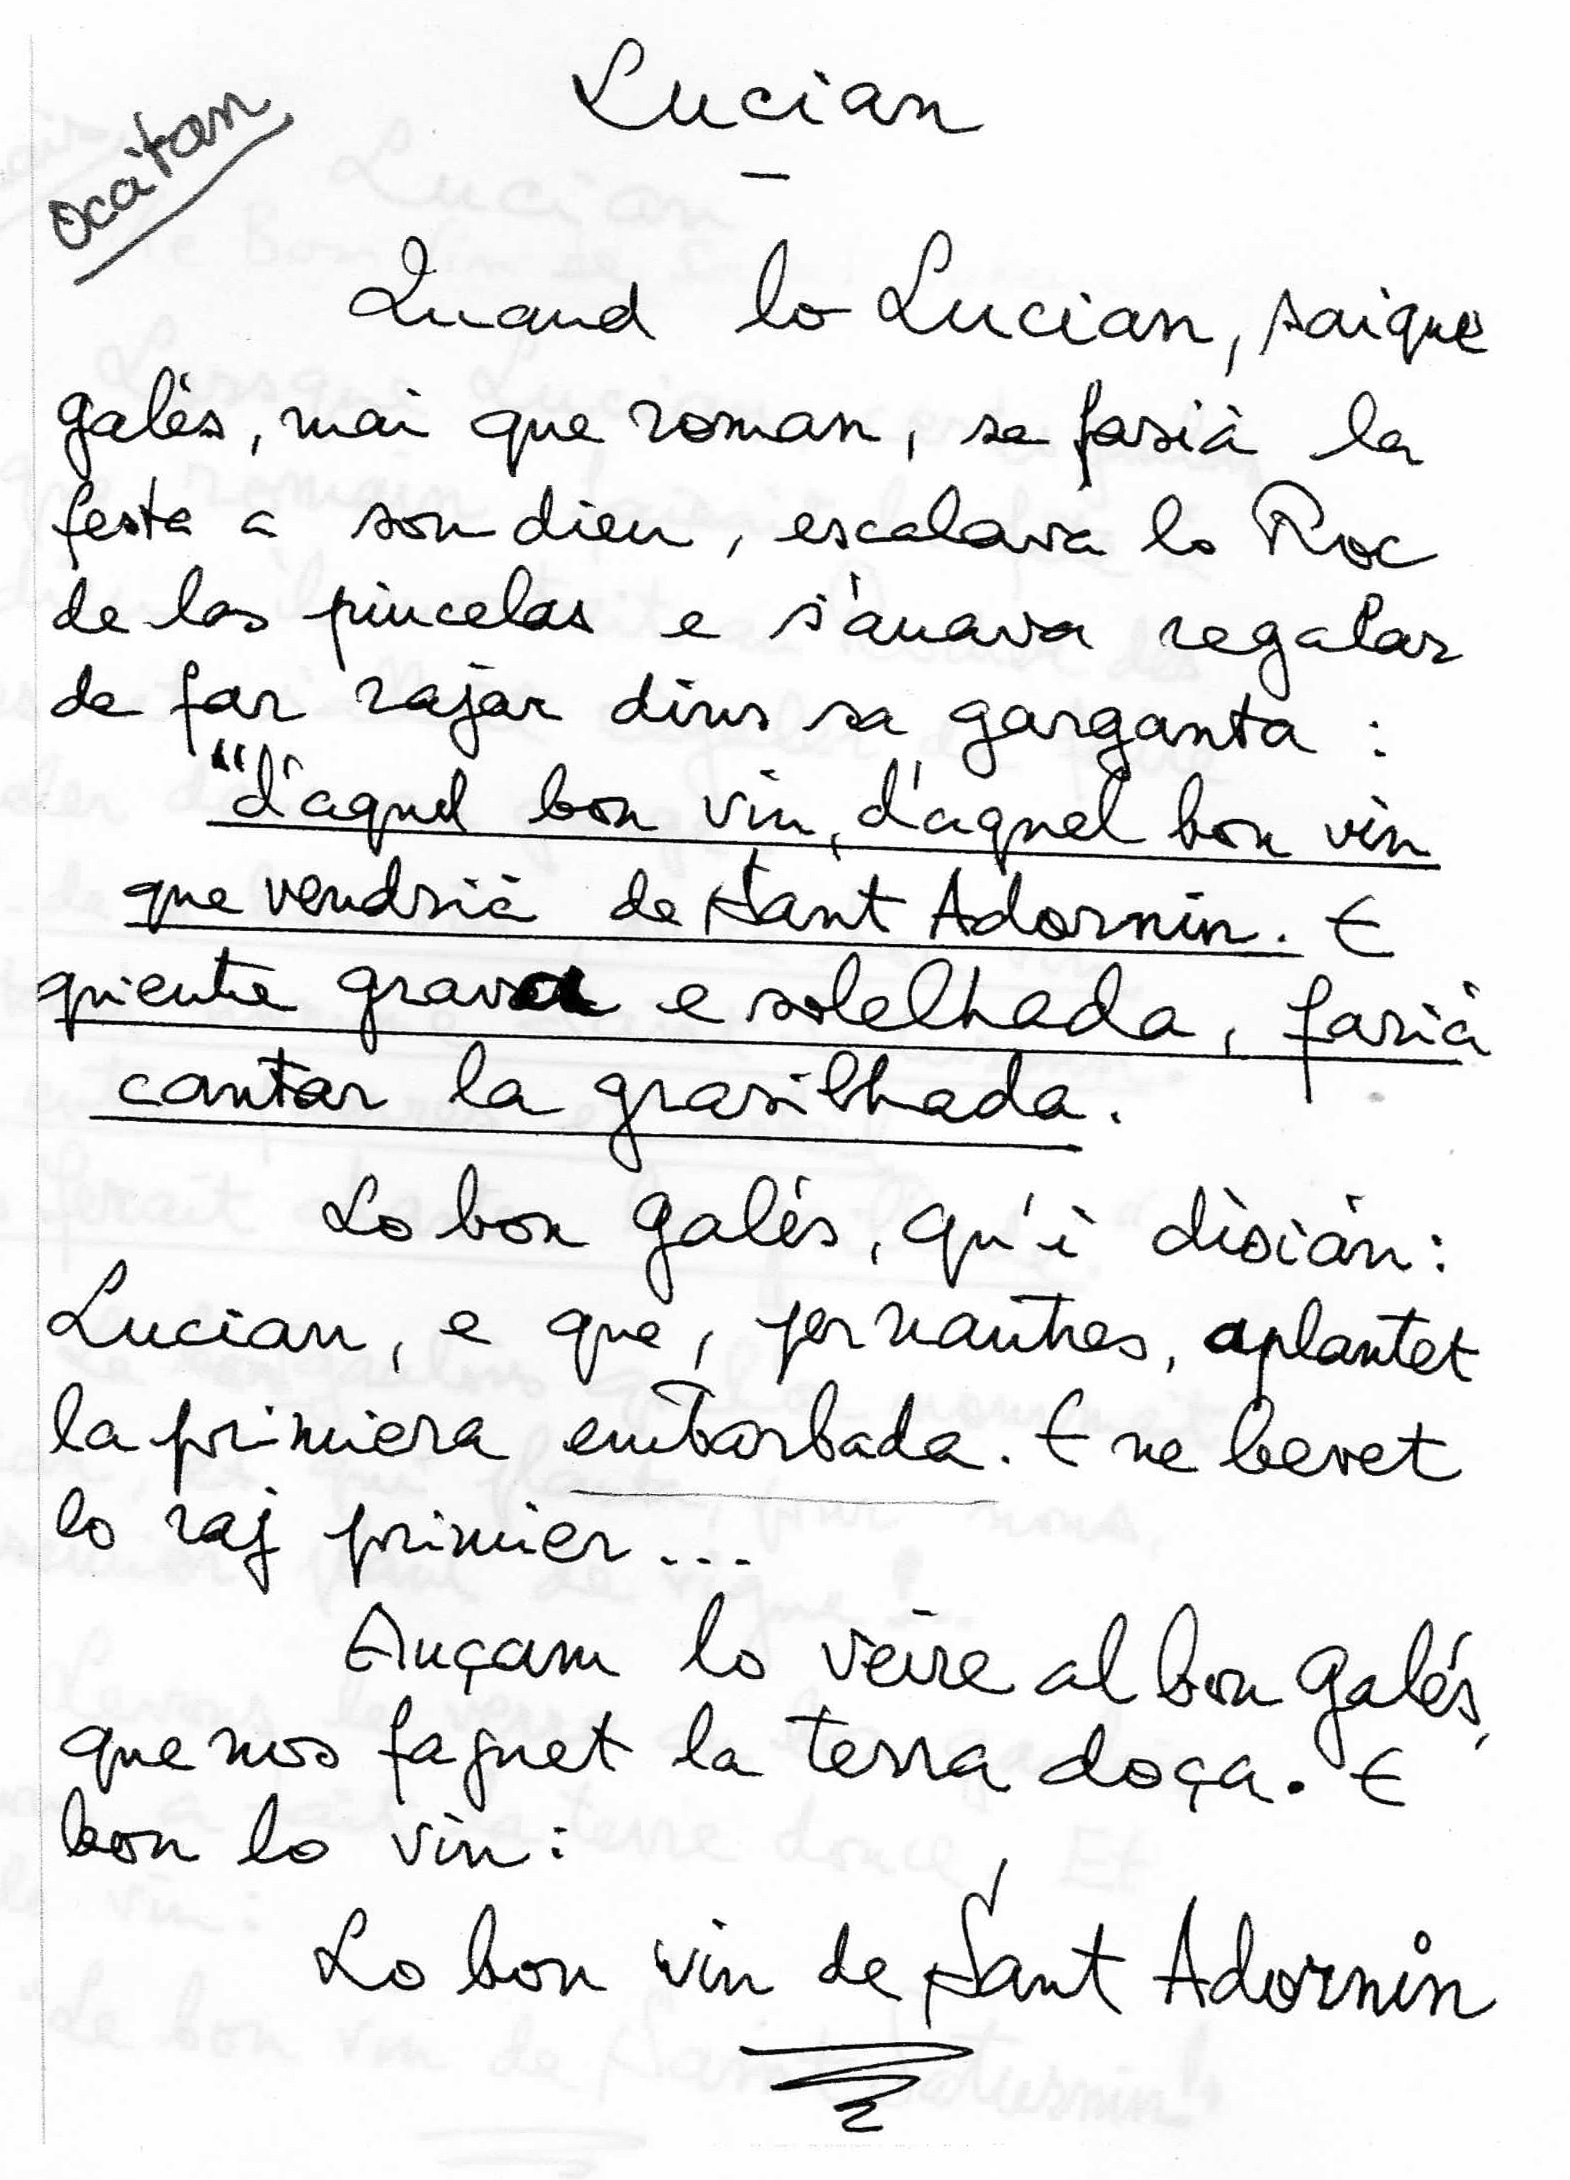 Lucian
Occitan
Quand lo Lucian, saique
galés, mai que roman, se fasiá la
festa a son dieu, escalava lo Roc
de las piucelas e s'anava regalar
de far rajar dins sa garganta :
"d'aquel bon vin, d'aquel bon vin
que vendriá de Sant Adornin. E
qu'entre grava e solelhada, fariá
cantar la grasilhada.
Lo bon galés, qu'i disián :
Lucian, e que, per nautres, aplantet
la primiera embarbada. E ne bevet
lo raj primier...
Auçam lo veire al bon galés,
que nos faguet la terra doça. E
bon lo vin :
Lo bon vin de Sant Adornin